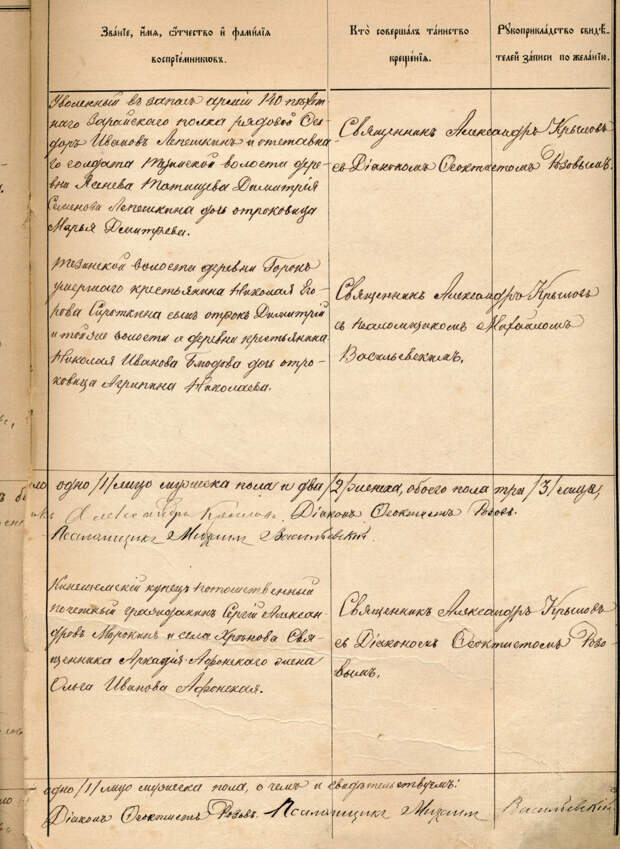 Звáнїе, и́мя, ѻ́тчество и҆ фами́лїя
воспрїе́мниковъ.
Кто̀ соверша́лъ та́инство
креще́нїя.
Рꙋкоприкла́дство свидѣ́-
телей за́писи по жела́нїю.
Уволенный въ запасъ армiи 140 пѣхот-
наго Зарайскаго полка рядовой Ѳео-
доръ Ивановъ Лепешкинъ и отставна-
го солдата волости дерев-
ни Яснева Димитрiя
Семенова Лепешкина дочь отроковица
Марья Дмитрiева.
Священникъ Александръ Крыловъ
съ Дiакономъ Ѳеоктистомъ Розовымъ.
волости деревни Горокъ
умершаго крестьянина Николая Его-
рова Сироткина сынъ отрокъ Димитрiй
и тойже волости и деревни крестьянина
Николая Иванова дочь отро-
ковица Агрипина Николаева.
Священникъ Александръ Крыловъ
съ псаломщикомъ Михаиломъ
Васильевскимъ.
одно /1/ лицо мужеска пола и два /2/ женска, обоего пола три /3/ лица,
Александръ Крыловъ. Дiаконъ Ѳеоктистъ Розовъ.
Псаломщикъ Михаилъ Васильевскiй.
Кинешемскiй купецъ потомственный
почетный гражданинъ Сергѣй Алексан-
дровъ Морокинъ и села Хрѣнова Свя-
щенника Аркадiя Афонскаго жена
Ольга Иванова Афонская.
Священникъ Александръ Крыловъ
съ Дiакономъ Ѳеоктистомъ Розо-
вымъ.
одно /1/ лицо мужеска пола, о чемъ и свидѣтельствуемъ:
Дiаконъ Ѳеоктистъ Розовъ. Псаломщикъ Михаилъ Васильевскiй